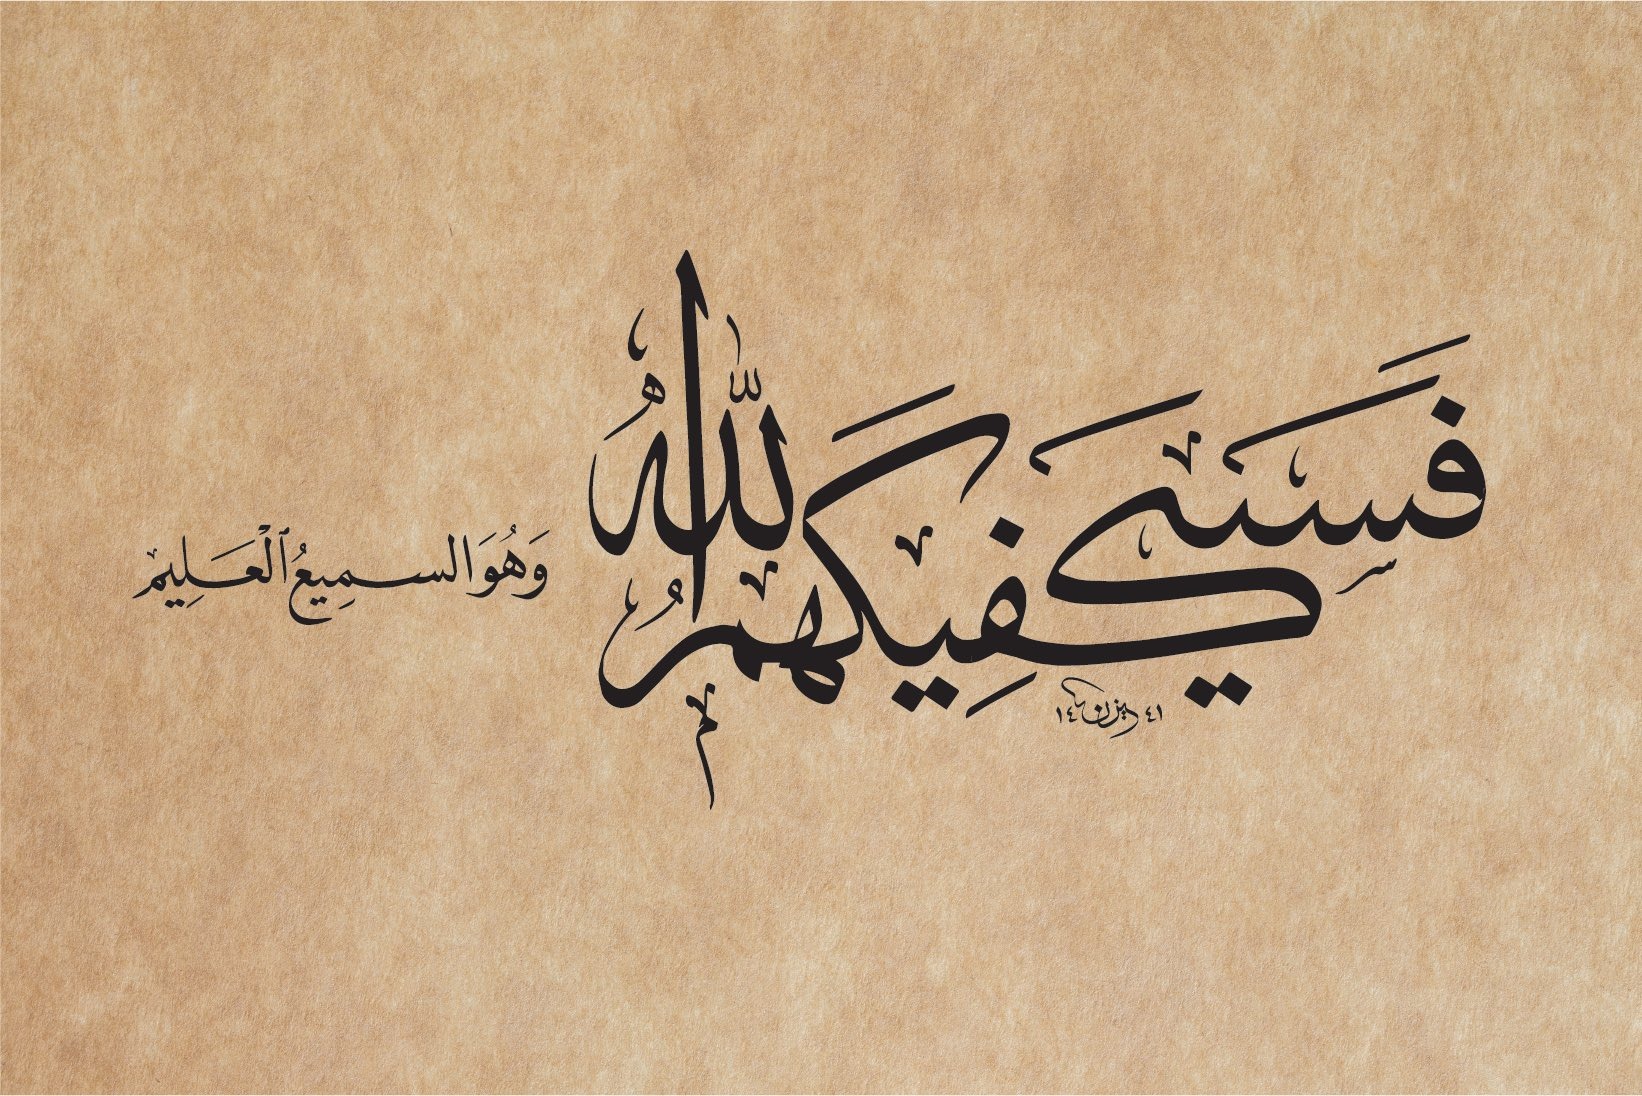 فَسَيَكْفِيكَهُمُ اللَّهُ
وَهُوَ السمِيعُ ٱلْعَلِيمْ